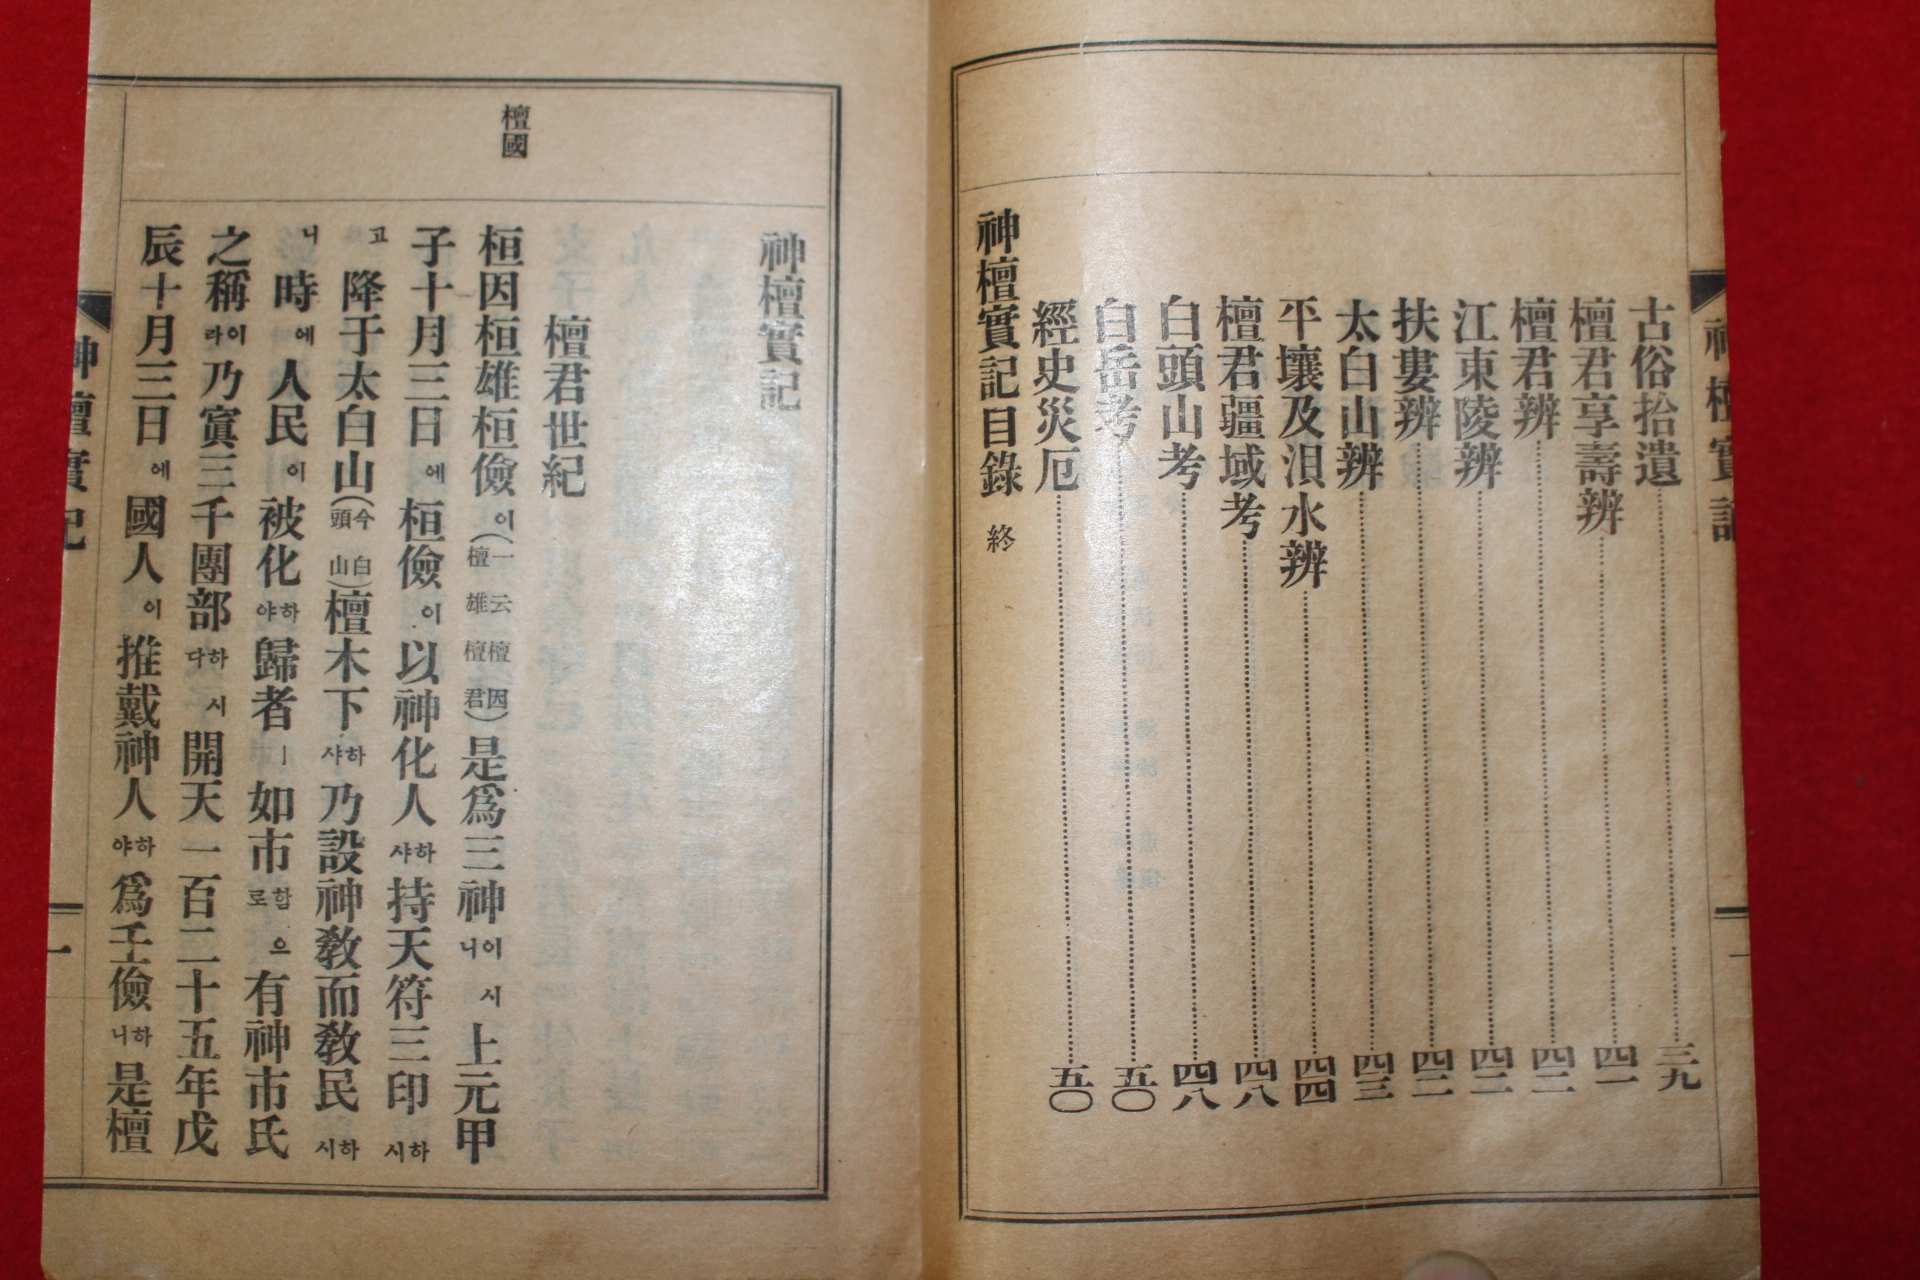 古俗拾遺 三九
檀君享壽辨 四一
檀君辨 四二
江東陵辨 四二
扶婁辨 四二
太白山辨 四三
平壤及浿水辨 四四
檀君疆域考 四八
白頭山考 四八
白岳考 五〇
經史災厄 五〇
神檀實記目錄 終
檀國
神檀實記
檀君世紀
桓因桓雄桓儉이(一云檀因檀雄檀君)是爲三神이니시上元甲
子十月三日에桓儉이以神化人하샤持天符三印하시
고降于太白山(今白頭山)檀木下하샤乃設神敎而敎民하시
니時에人民이被化하야歸者ㅣ如市함으로有神市氏
之稱이라乃寘三千團部하시다開天一百二十五年戊
辰十月三日에國人이推戴神人하야爲壬儉하니是檀
神檀實記 一